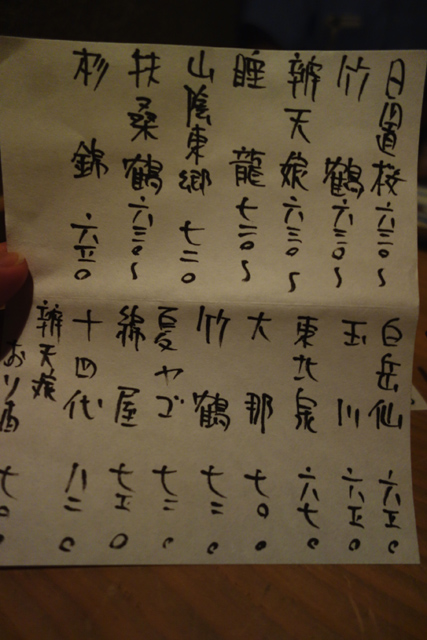 日置桜 六三〇〜
竹鶴 六三〇〜
辨天娘 六三〇〜
睡龍 七二〇〜
山陰東郷 七二〇
扶桑鶴 六三〇〜
杉錦 六五〇
白岳仙 六五〇
玉川 六五〇
東北泉 六七〇
大那 七〇〇
竹鶴 七二〇
夏ヤゴ 七二〇
綿屋 七五〇
十四代 八二〇
辨天娘
おり酒 七〇〇